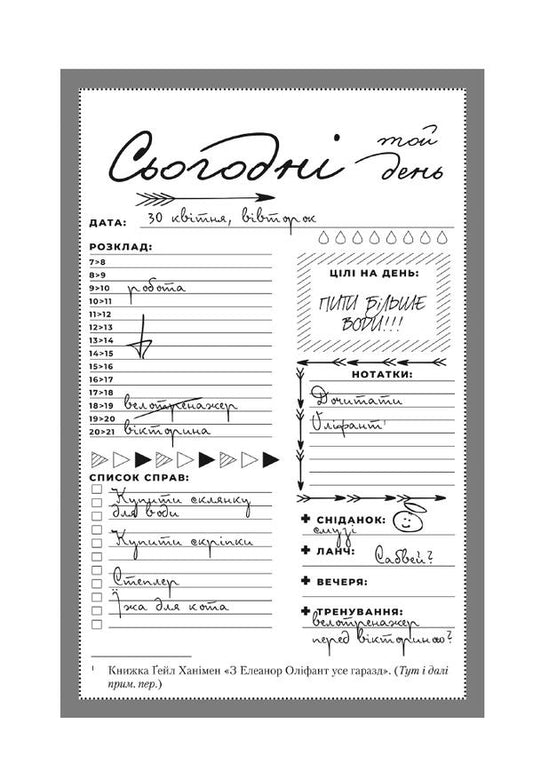 Сьогодні
мой день
ДАТА: 30 квітня, вівторок
РОЗКЛАД:
7>8
8>9
9>10 робота
10>11
11>12
12>13
13>14
14>15
15>16
16>17
17>18
18>19 велотренажер
19>20
20>21 вікторина
ЦІЛІ НА ДЕНЬ:
ПИТИ БІЛЬШЕ
ВОДИ!!!
НОТАТКИ:
Дочитати
Оліфант¹
СПИСОК СПРАВ:
Купити склянку
для води
Купити скріпки
Степлер
Їжа для кота
СНІДАНОК:
смузі
ЛАНЧ: Сабвей?
ВЕЧЕРЯ:
ТРЕНУВАННЯ:
велотренажер
перед вікториною?
¹ Книжка Ґейл Ханімен «З Елеанор Оліфант усе гаразд». (Тут і далі
прим. пер.)